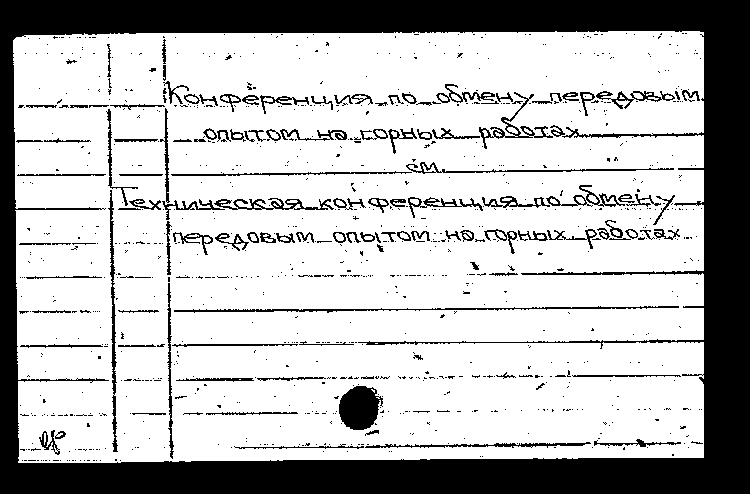 Конференция по обмену передовым
опытом на горных работах
см.
Техническая конференция по обмену
передовым опытом на горных работах